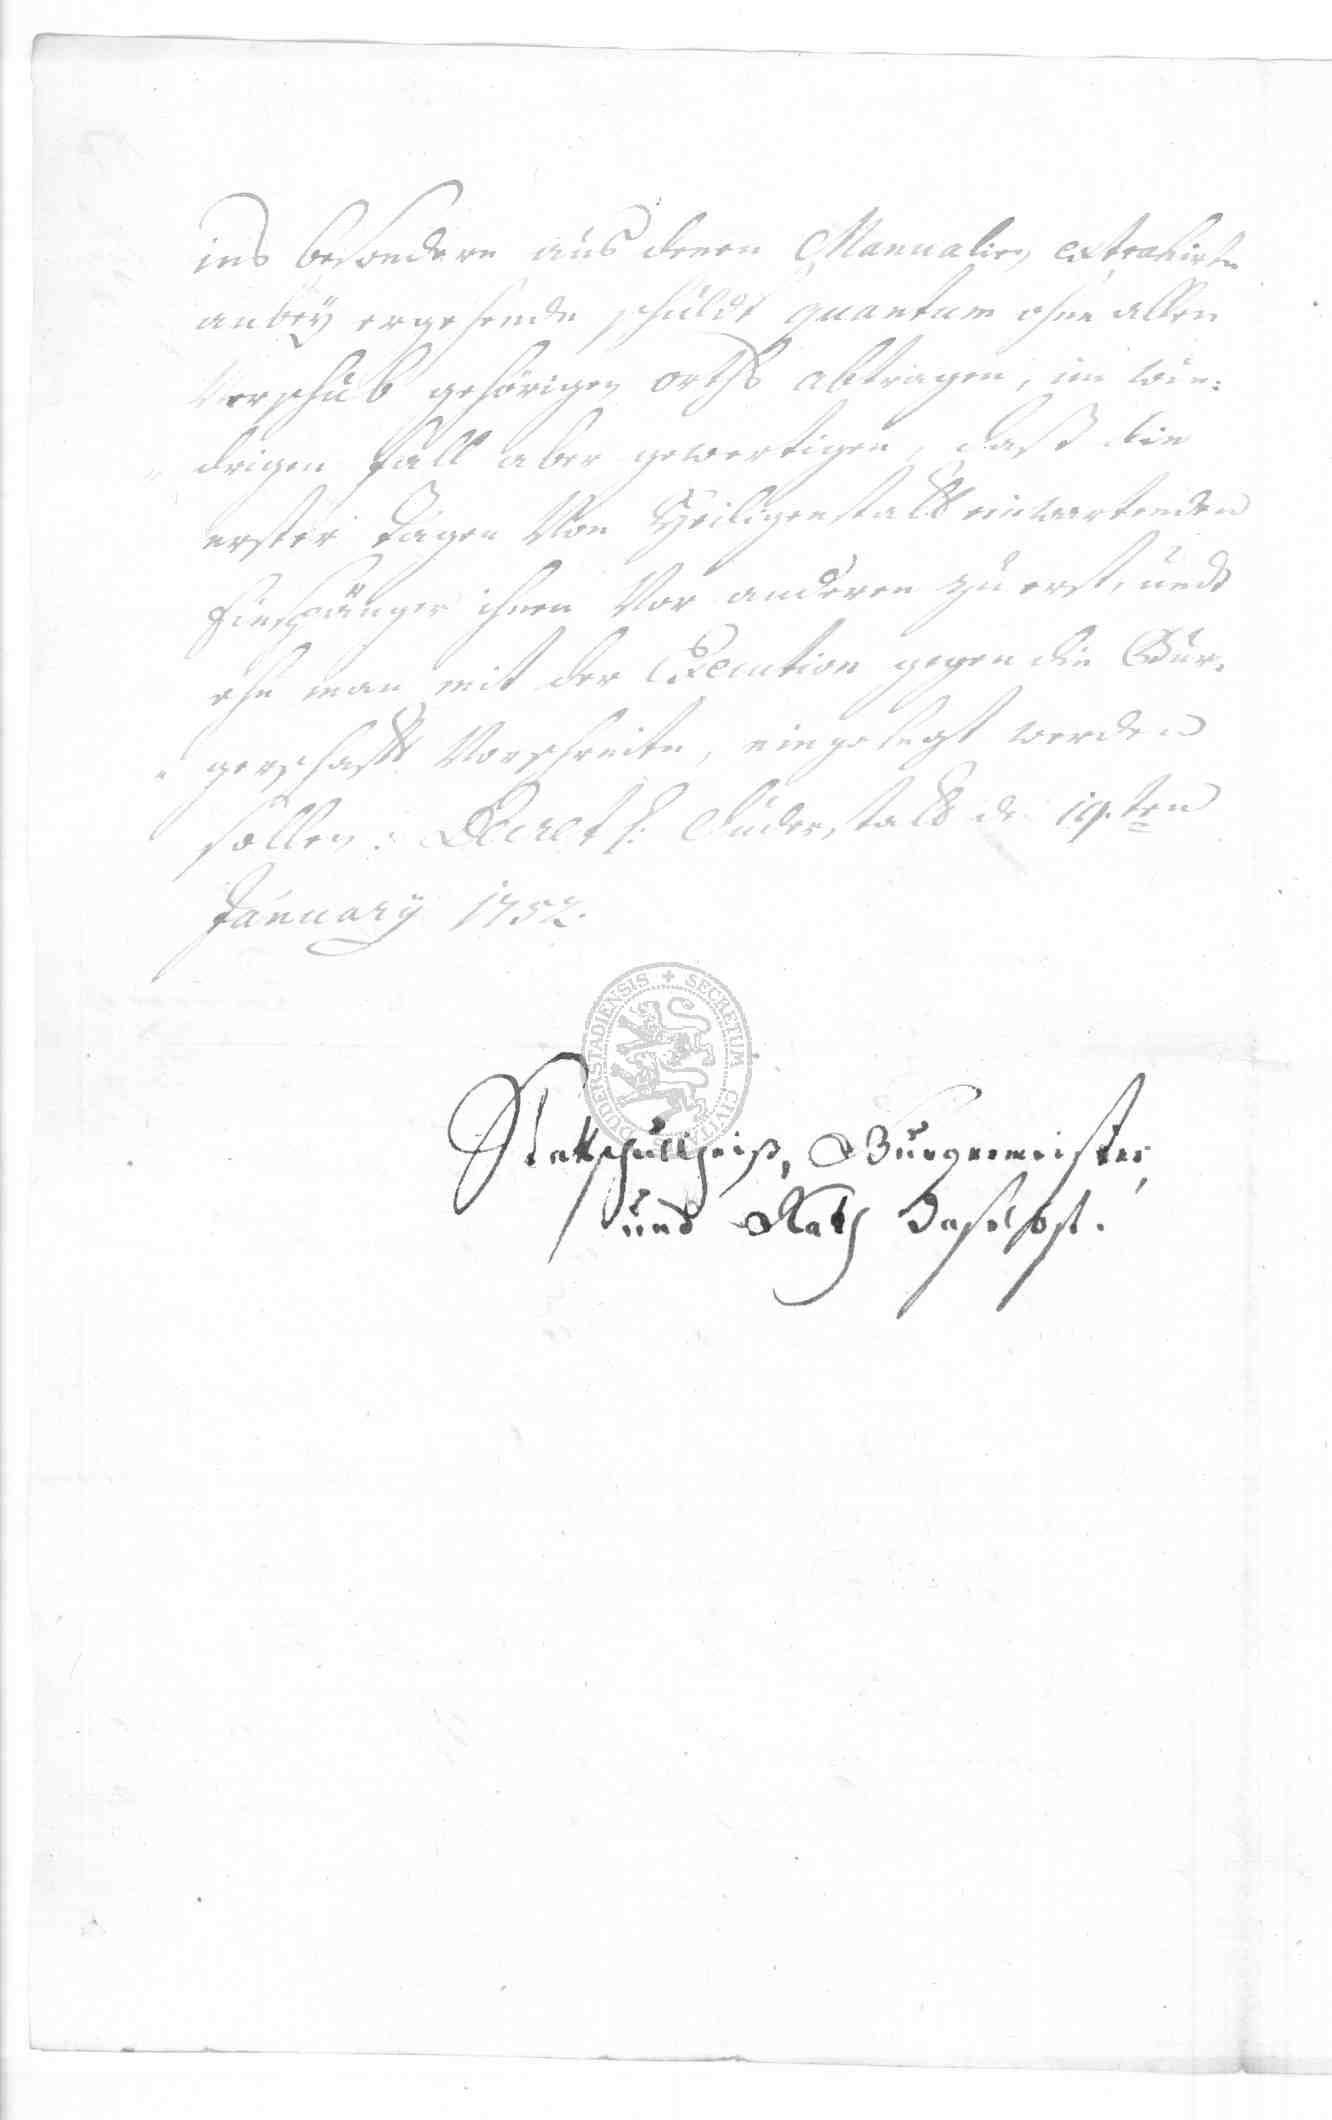 ins besondere aus denen Manualien extrahirte
anbey ergehende schuldt quantum ohne allen
Verschub gehörigen orths abtragen, im wie-
drigen fall aber gewertigen, daß die
erster Tagen Von Heiligenstadt einwartenden
Einspänger ihnen Vor anderen zu erst, undt
ehe man mit der Execution gegen die Bur-
gerschafft Vorschreite, eingelegt werden
sollen. Decret. Duderstadt d. 19.ten
January 1752.
SECRETUM CIVIT DUDERSTADIENSIS
Stattschultheiß, Burgermeister,
und Rath Daselbst.